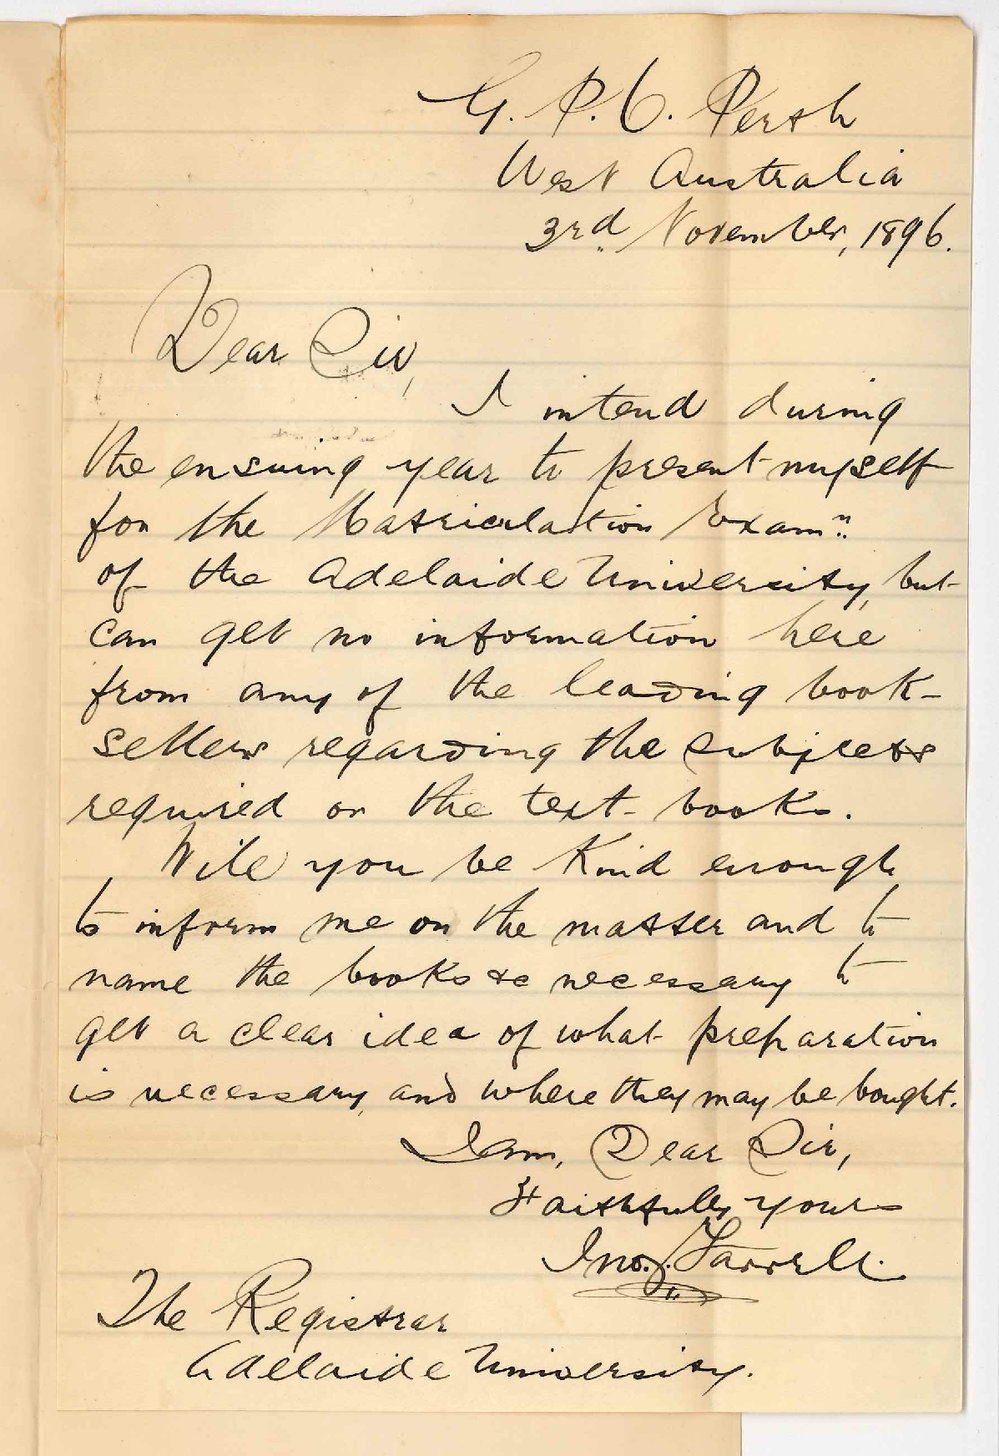 G. P. O. Perth
West Australia
3rd November, 1896.
Dear Sir,
I intend during
the ensuing year to present myself
for the Matriculation Examn
of the Adelaide University, but
can get no information here
from any of the leading book-
sellers regarding the subjects
required or the text-books.
Will you be kind enough
to inform me on the matter and to
name the books &c necessary to
get a clear idea of what preparation
is necessary, and where they may be bought.
I am, Dear Sir,
Faithfully yours
Jno. J. Farrell.
The Registrar
Adelaide University.